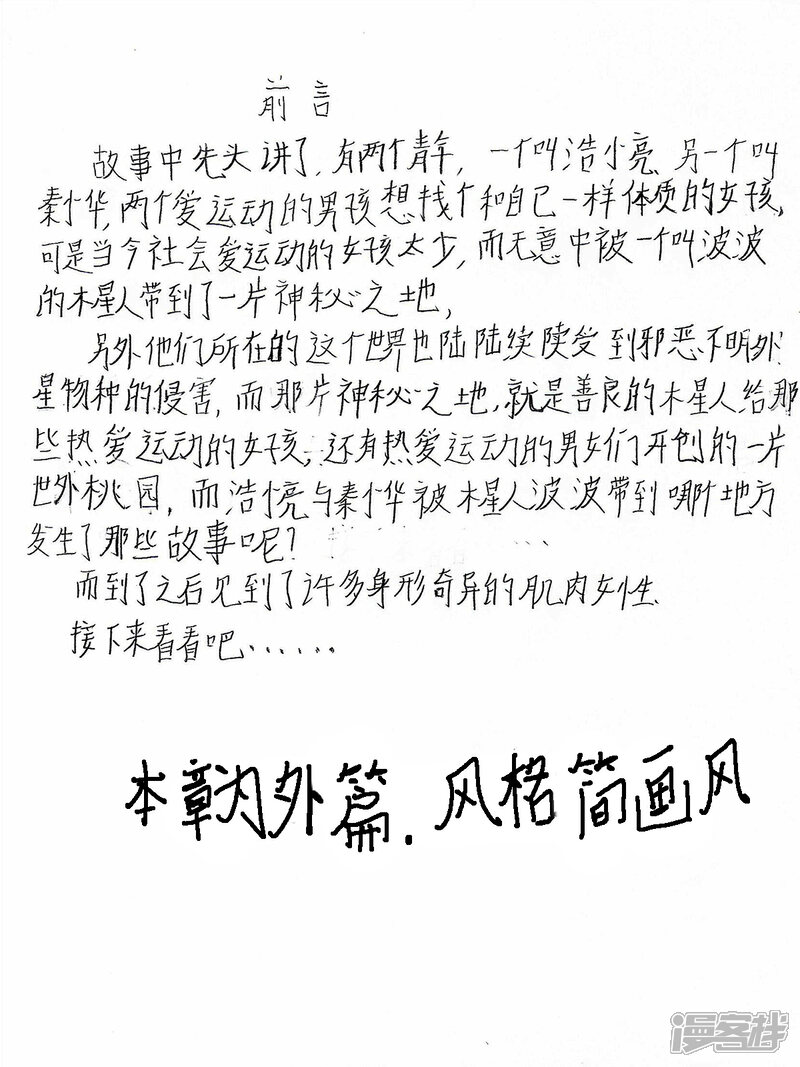 前言
故事中先头讲了,有两个青年,一个叫浩小亮,另一个叫
秦小华,两个爱运动的男孩想找个和自己一样体质的女孩,
可是当今社会爱运动的女孩太少,而无意中被一个叫波波
的木星人带到了一片神秘之地,
另外他们所在的这个世界也陆陆续续受到邪恶不明外
星物种的侵害,而那片神秘之地,就是善良的木星人给那
些热爱运动的女孩,还有热爱运动的男女们开创的一片
世外桃园,而浩小亮与秦小华被木星人波波带到哪个地方
发生了那些故事呢?......
而到了之后见到了许多身形奇异的肌肉女性.
接下来看看吧......
本章为外篇.风格简画风
漫客栈